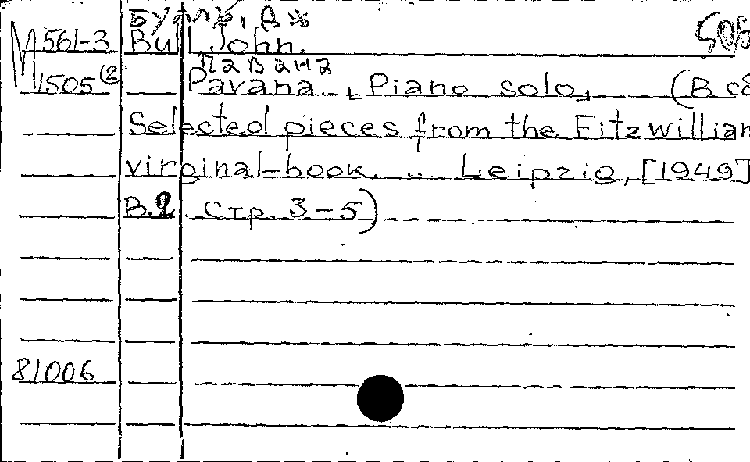 Булл, Дж
М 561-3 Bull John. 505
1505(2 Павана
Pavana. [Piano solo] (В сб
Selected pieces from the Fitzwilliam
virginal-book. .. Leipzig, [1949]
B.2 Стр. 3-5)
81006